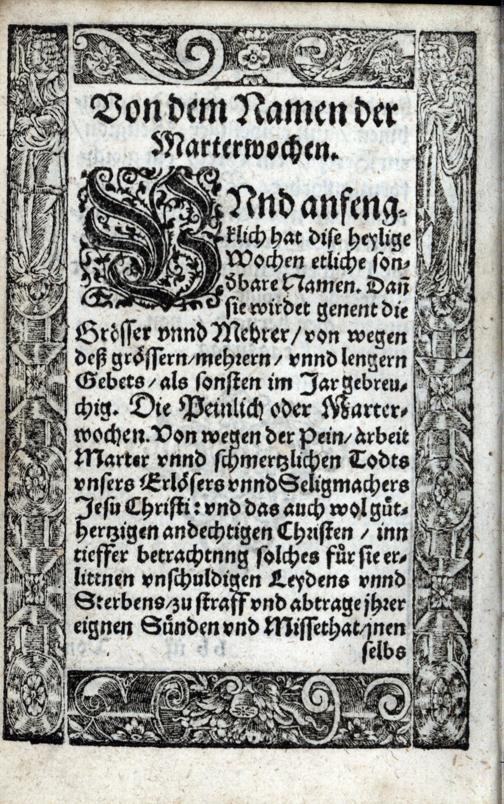 Von dem Namen der
Marterwochen.
VNnd anfeng-
klich hat dise heylige
Wochen etliche son-
dbare Namen. Dañ
sie wirdet genent die
Grösser vnnd Mehrer/von wegen
deß grössern/mehrern/vnnd lengern
Gebets/als sonsten im Jar gebreu-
chig. Die Peinlich oder Marter-
wochen. Von wegen der Pein/arbeit
Marter vnnd schmertzlichen Todts
vnsers Erlösers vnnd Seligmachers
Jesu Christi: vnd das auch wol güt-
hertzigen andechtigen Christen/inn
tieffer betrachtnng solches für sie er-
littnen vnschuldigen Leydens vnnd
Sterbens/zu straff vnd abtrage jhrer
eignen Sünden vnd Missethat/jnen
selbs